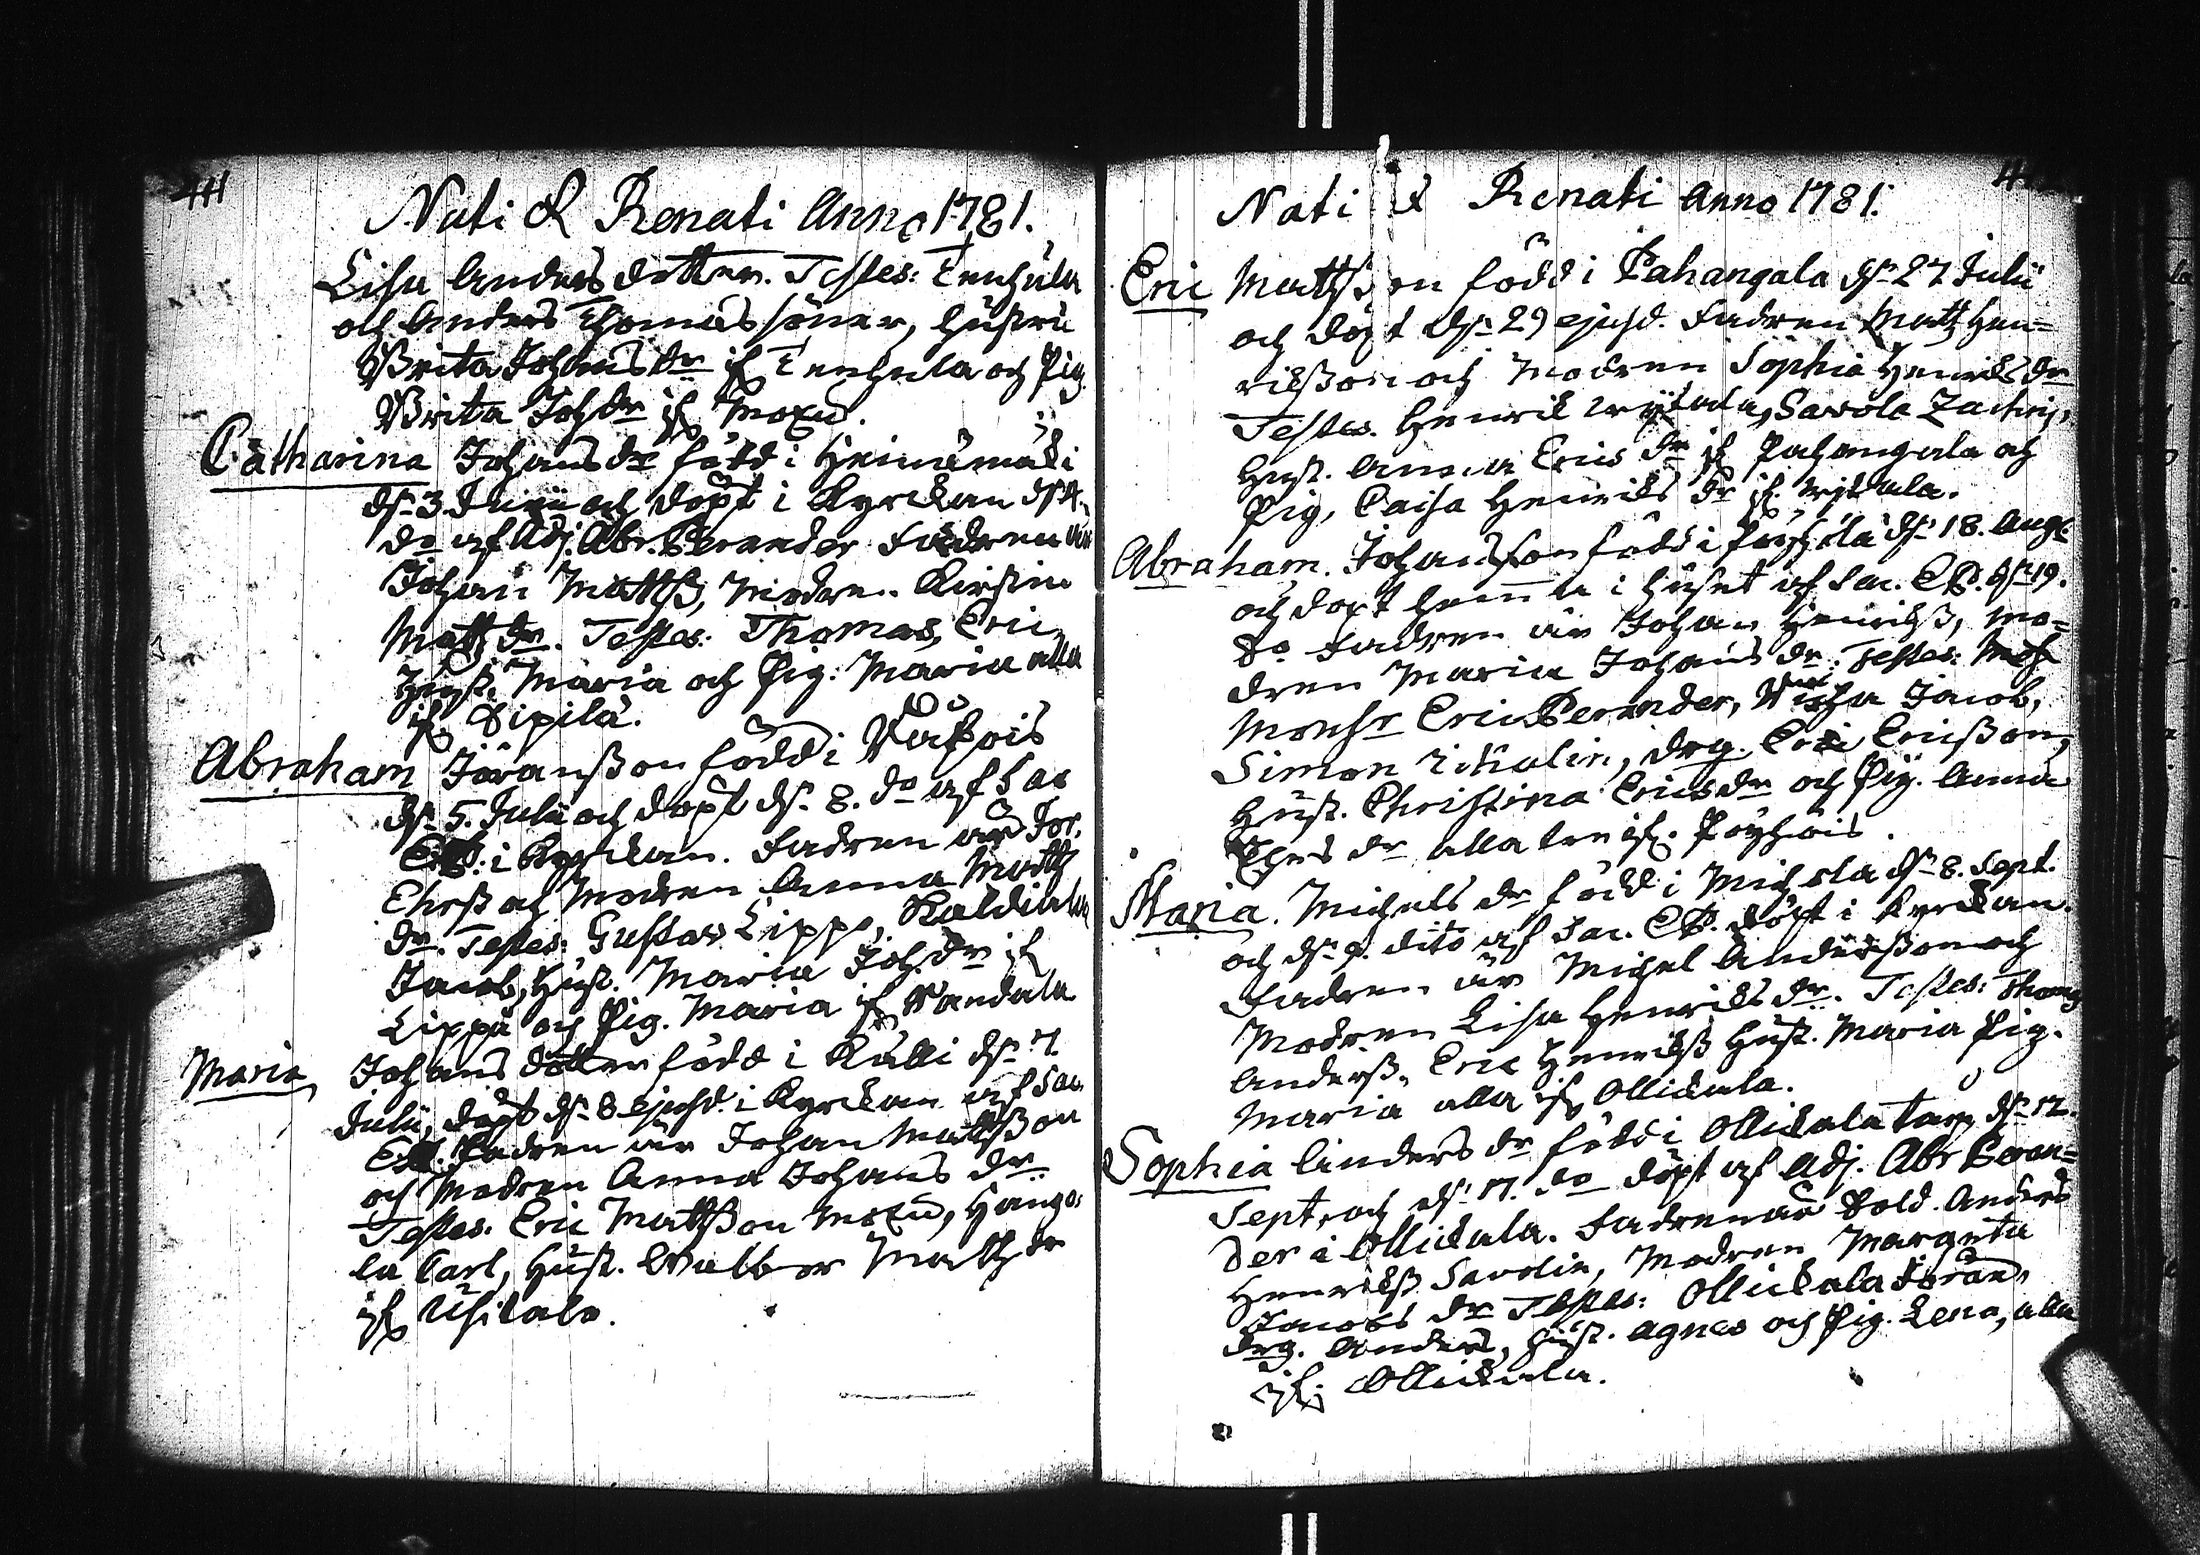 411
Nati & Renati Anno 1781.
Lisa Andersdotter. Testes: Tenhula
och Anders Thomassöner, Hustru
Brita Johansdr if Tenhula och Pig.
Brita Johdr if Moxu.
Catharina Johansdr född i Heinämäki
dn 3 Junii och döpt i Kyrckan dn 4.
do af Adj. Abr. Perander Fadren är
Johan Mattß, Modren Kirstin
Mattsdr. Testes: Thomas, Eric,
Hust. Maria och Pig: Maria alla
if. Sipilä.
Abraham Jöranßon född i
dn 5. Julii och döpt dn 8. do af Sac
CB. i Kyrckan. Fadren är Jör.
Ehrsß och Modren Anna Matts
dr. Testes: Gustav Lippo, Kaldiala
Jacob, Hust. Maria Joh.dr if
Lippo och Pig. Maria if Vandala
Maria Johans dotter född i Kulli dn 7.
Julii, döpt dn 8 ejusd. i Kyrckan af Sac.
CB. Fadren är Johan Mattsßon
och Modren Anna Johans dr.
Testes. Eric Mattsßon Moxu, Hango-
la Carl, Hust. Walbor Mattsdr
if Usitalo.
Nati & Renati Anno 1781.
Eric Mattsson född i Pahangala dn 27 Julii
och döpt dn 29 ejusd. Fadren Matts Hen=
rikßon och Modren Sophia Henriksdr
Testes. Henrik, Savola Zachris,
Hust. Anna Ericsdr if Pahangala och
Pig, Caisa Henriks dr if.
Abraham. Johansson född i dn 18. Aug.
och döpt hemma i huset af Sac. CB. dn 19.
do Fadren är Johan Henriksß, Mo=
dren Maria Johansdr. Testes:
Monsr Eric Perander, Jacob,
Simon, drg. Eric Ericßon,
Hust. Christina Ericsdr och Pig. Anna
Ehrsdr alla tre if. Pöyhöis.
Maria. Michelsdr född i Michola dn 8. Sept.
och dn 9. dito af Sac. CB. döpt i Kyrckan.
Fadren är Michel Andersßon och
Modren Lisa Henriksdr. Testes: Thomas
Andersß, Eric Henriksß Hust. Maria Pig.
Maria alla if Ollickala.
Sophia Andersdr född i Ollickala Torp dn 12.
Sept, och dn 17. do döpt af Adj. Abr Peran=
der i Ollickala. Fadren är Sold. Anders
Henriksß Savolin, Modren Margreta
Jacobsdr Testes: Ollickala Jöran,
drg. Anders, Hust. Agnes och Pig. Lena, alla
if. Ollickala.